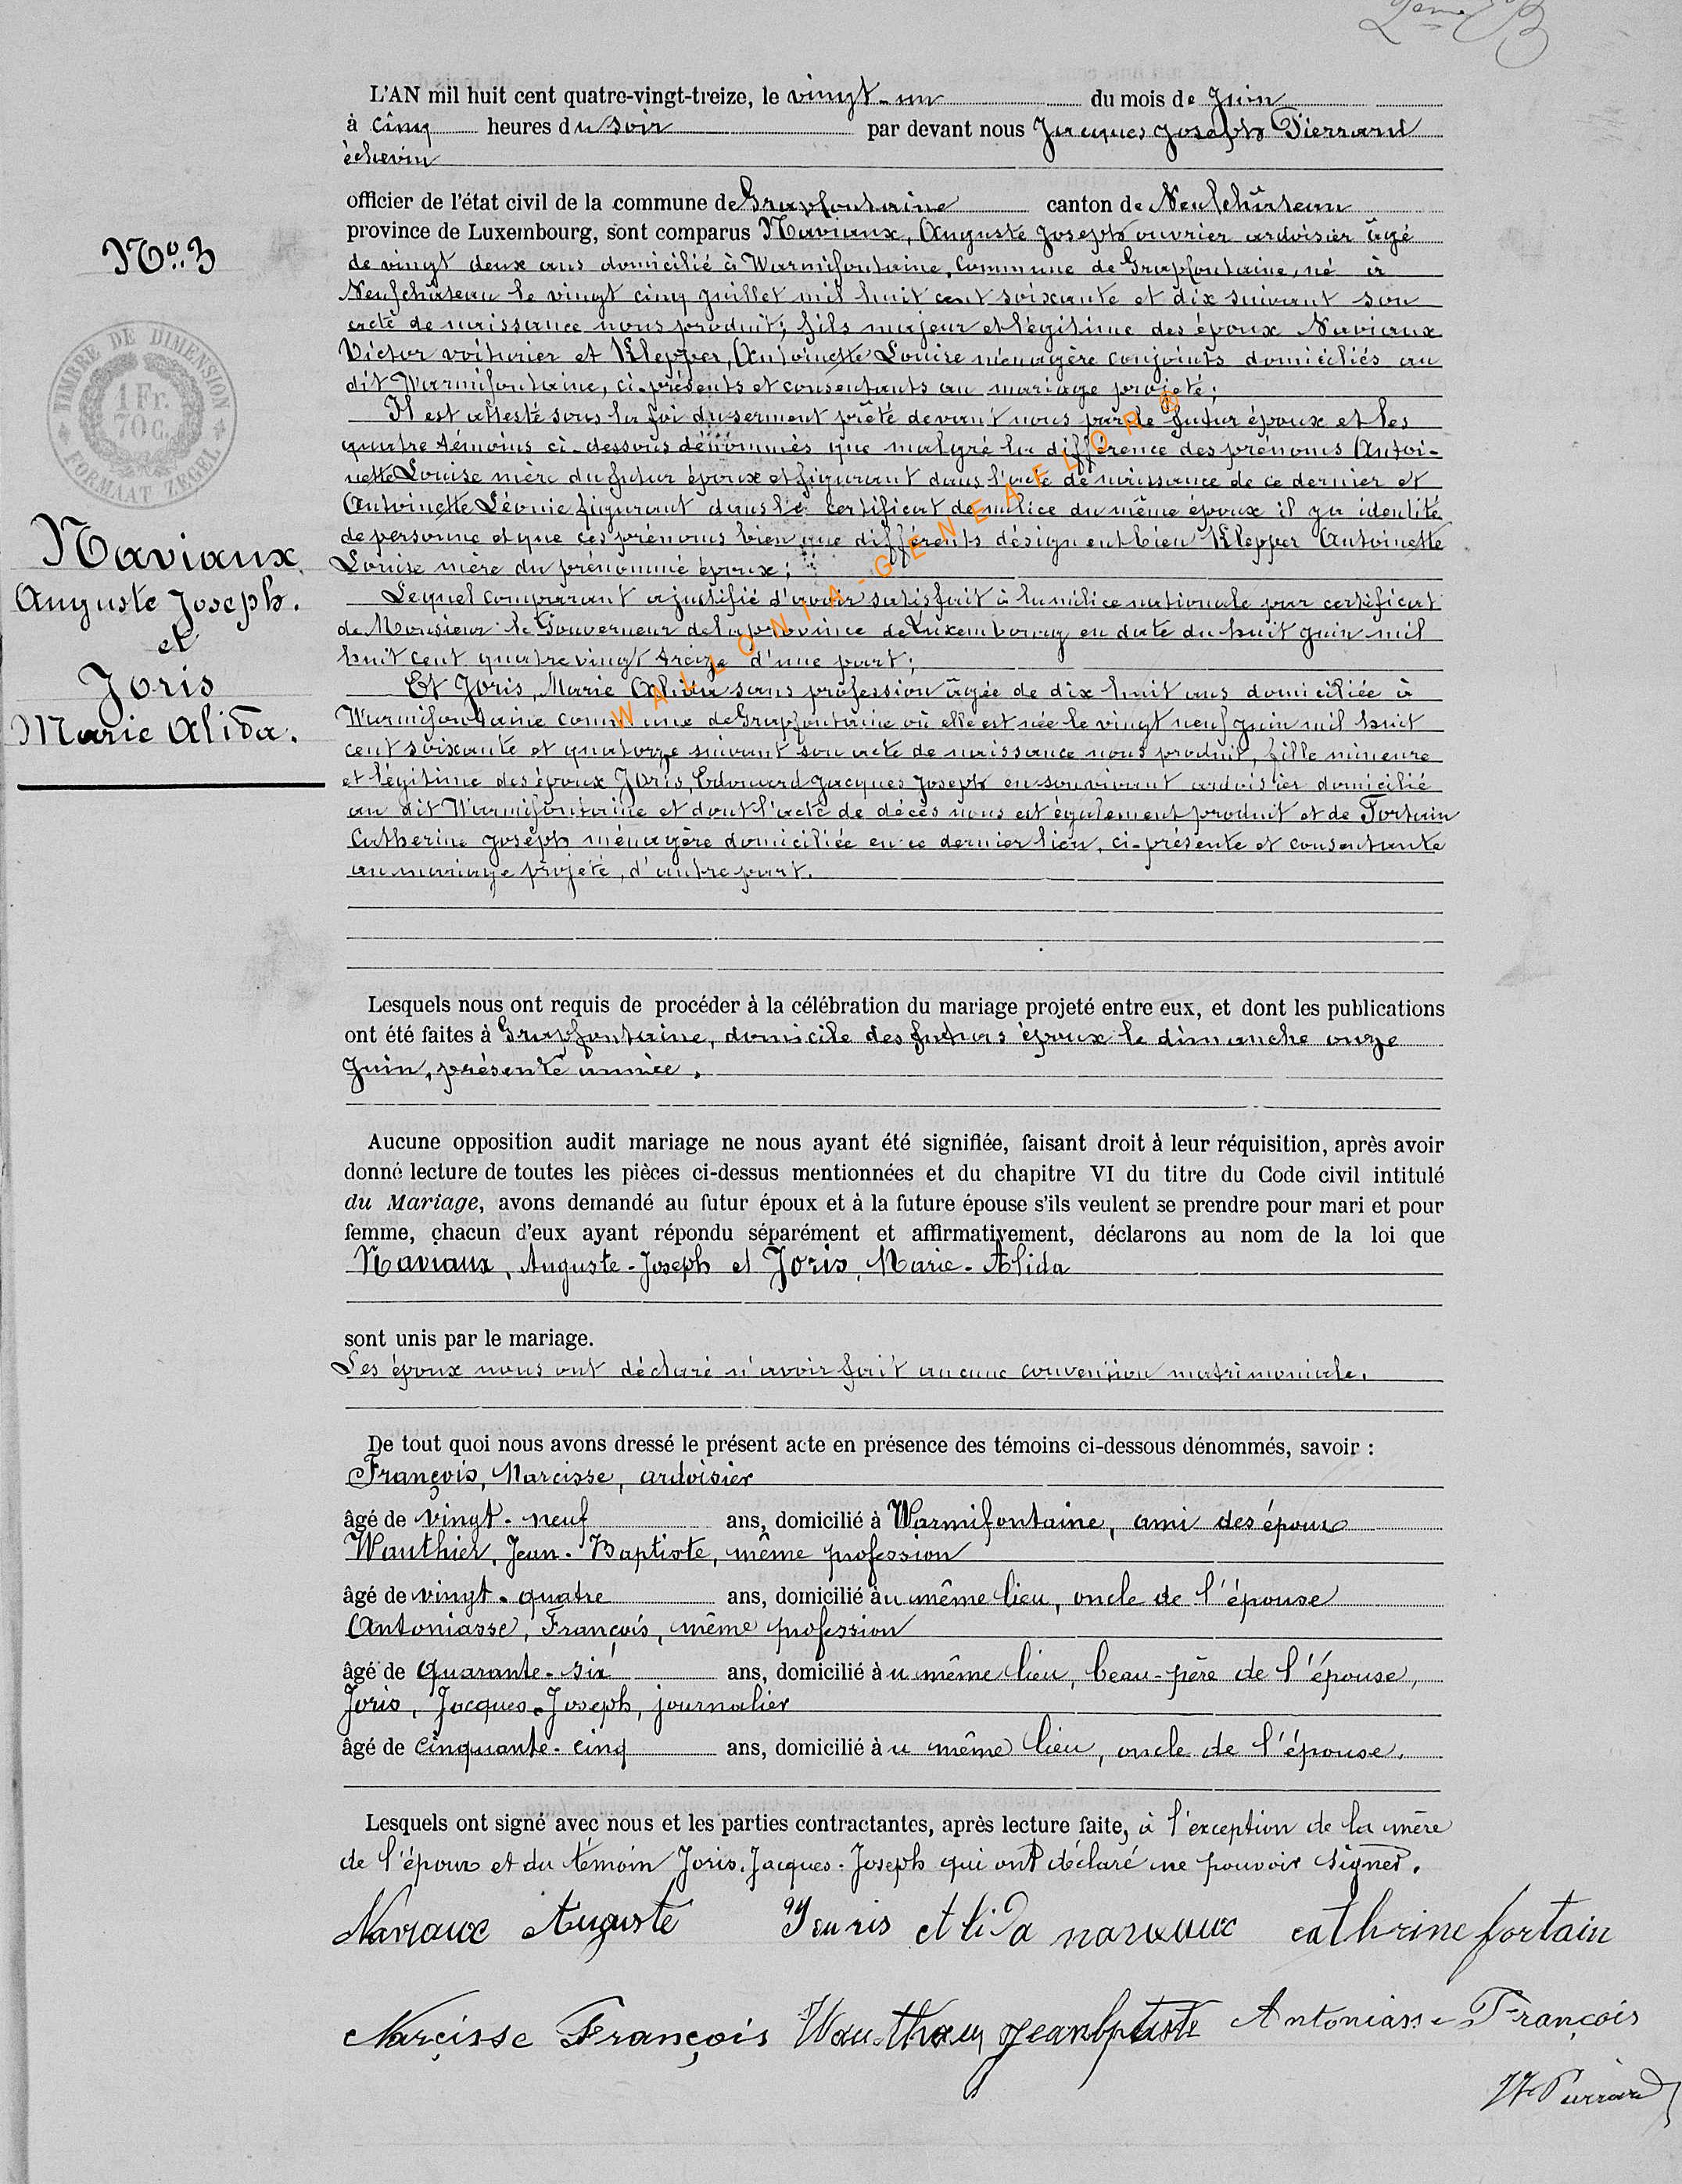 2eme B
L'AN mil huit cent quatre-vingt-treize, le vingt-un du mois de Juin
à cinq heures du soir par devant nous Jacques Joseph Pierrard
échevin
officier de l'état civil de la commune de Grapfontaine canton de Neufchâteau
province de Luxembourg, sont comparus Naviaux, Auguste Joseph ouvrier ardoisier âgé
de vingt deux ans domicilié à Warmifontaine, Commune de Grapfontaine, né à
Neufchâteau le vingt cinq juillet mil huit cent soixante et dix suivant son
acte de naissance nous produit; fils majeur et légitime des époux Naviaux
Victor voiturier et Klepper, Antoinette Louise ménagère conjoints domiciliés au
dit Warmifontaine, ci-présents et consentants au mariage projeté;
Il est attesté sous la foi du serment prêté devant nous par le futur époux et les
quatre témoins ci-dessous dénommés que malgré la différence des prénoms Antoi-
nette Louise mère du futur époux et figurant dans l'acte de naissance de ce dernier et
Antoinette Léonie figurant dans le certificat de milice du même époux il y a identité
de personne et que ces prénoms bien que différents désignent bien Klepper Antoinette
Louise mère du prénommé époux;
Lequel comparant a justifié d'avoir satisfait à la milice nationale par certificat
de Monsieur le Gouverneur de la province de Luxembourg en date du huit juin mil
huit cent quatre vingt treize d'une part;
Et Joris, Marie Alida sans profession âgée de dix huit ans domiciliée à
Warmifontaine commune de Grapfontaine où elle est née le vingt neuf juin mil huit
cent soixante et quatorze suivant son acte de naissance nous produit, fille mineure
et légitime des époux Joris, Edouard Jacques Joseph en son vivant ardoisier domicilié
au dit Warmifontaine et dont l'acte de décès nous est également produit et de Fortain
Catherine Joseph ménagère domiciliée en ce dernier lieu, ci-présente et consentante
au mariage projeté, d'autre part.
No. 3
TIMBRE DE DIMENSION
1 Fr.
70 C.
FORMAAT ZEGEL
Naviaux
Auguste Joseph.
et
Joris
Marie Alida.
WALLONIA-GENEAFLOR®
Lesquels nous ont requis de procéder à la célébration du mariage projeté entre eux, et dont les publications
ont été faites à Grapfontaine, domicile des futurs époux le dimanche onze
Juin, présente année.
Aucune opposition audit mariage ne nous ayant été signifiée, faisant droit à leur réquisition, après avoir
donné lecture de toutes les pièces ci-dessus mentionnées et du chapitre VI du titre du Code civil intitulé
du Mariage, avons demandé au futur époux et à la future épouse s'ils veulent se prendre pour mari et pour
femme, chacun d'eux ayant répondu séparément et affirmativement, déclarons au nom de la loi que
Naviaux, Auguste-Joseph et Joris, Marie-Alida
sont unis par le mariage.
Les époux nous ont déclaré n'avoir fait aucune convention matrimoniale.
De tout quoi nous avons dressé le présent acte en présence des témoins ci-dessous dénommés, savoir :
François, Narcisse, ardoisier
âgé de vingt-neuf ans, domicilié à Warmifontaine, ami des époux
Wauthier, Jean-Baptiste, même profession
âgé de vingt-quatre ans, domicilié au même lieu, oncle de l'épouse
Antoniasse, François, même profession
âgé de quarante-six ans, domicilié au même lieu, beau-père de l'épouse,
Joris, Jacques-Joseph, journalier
âgé de cinquante-cinq ans, domicilié au même lieu, oncle de l'épouse.
Lesquels ont signé avec nous et les parties contractantes, après lecture faite, à l'exception de la mère
de l'époux et du témoin Joris, Jacques-Joseph qui ont déclaré ne pouvoir signer.
Naviaux Auguste Jouris Alida naviaux cathrine fortain
Narcisse François jeanbptiste Antoniasse François